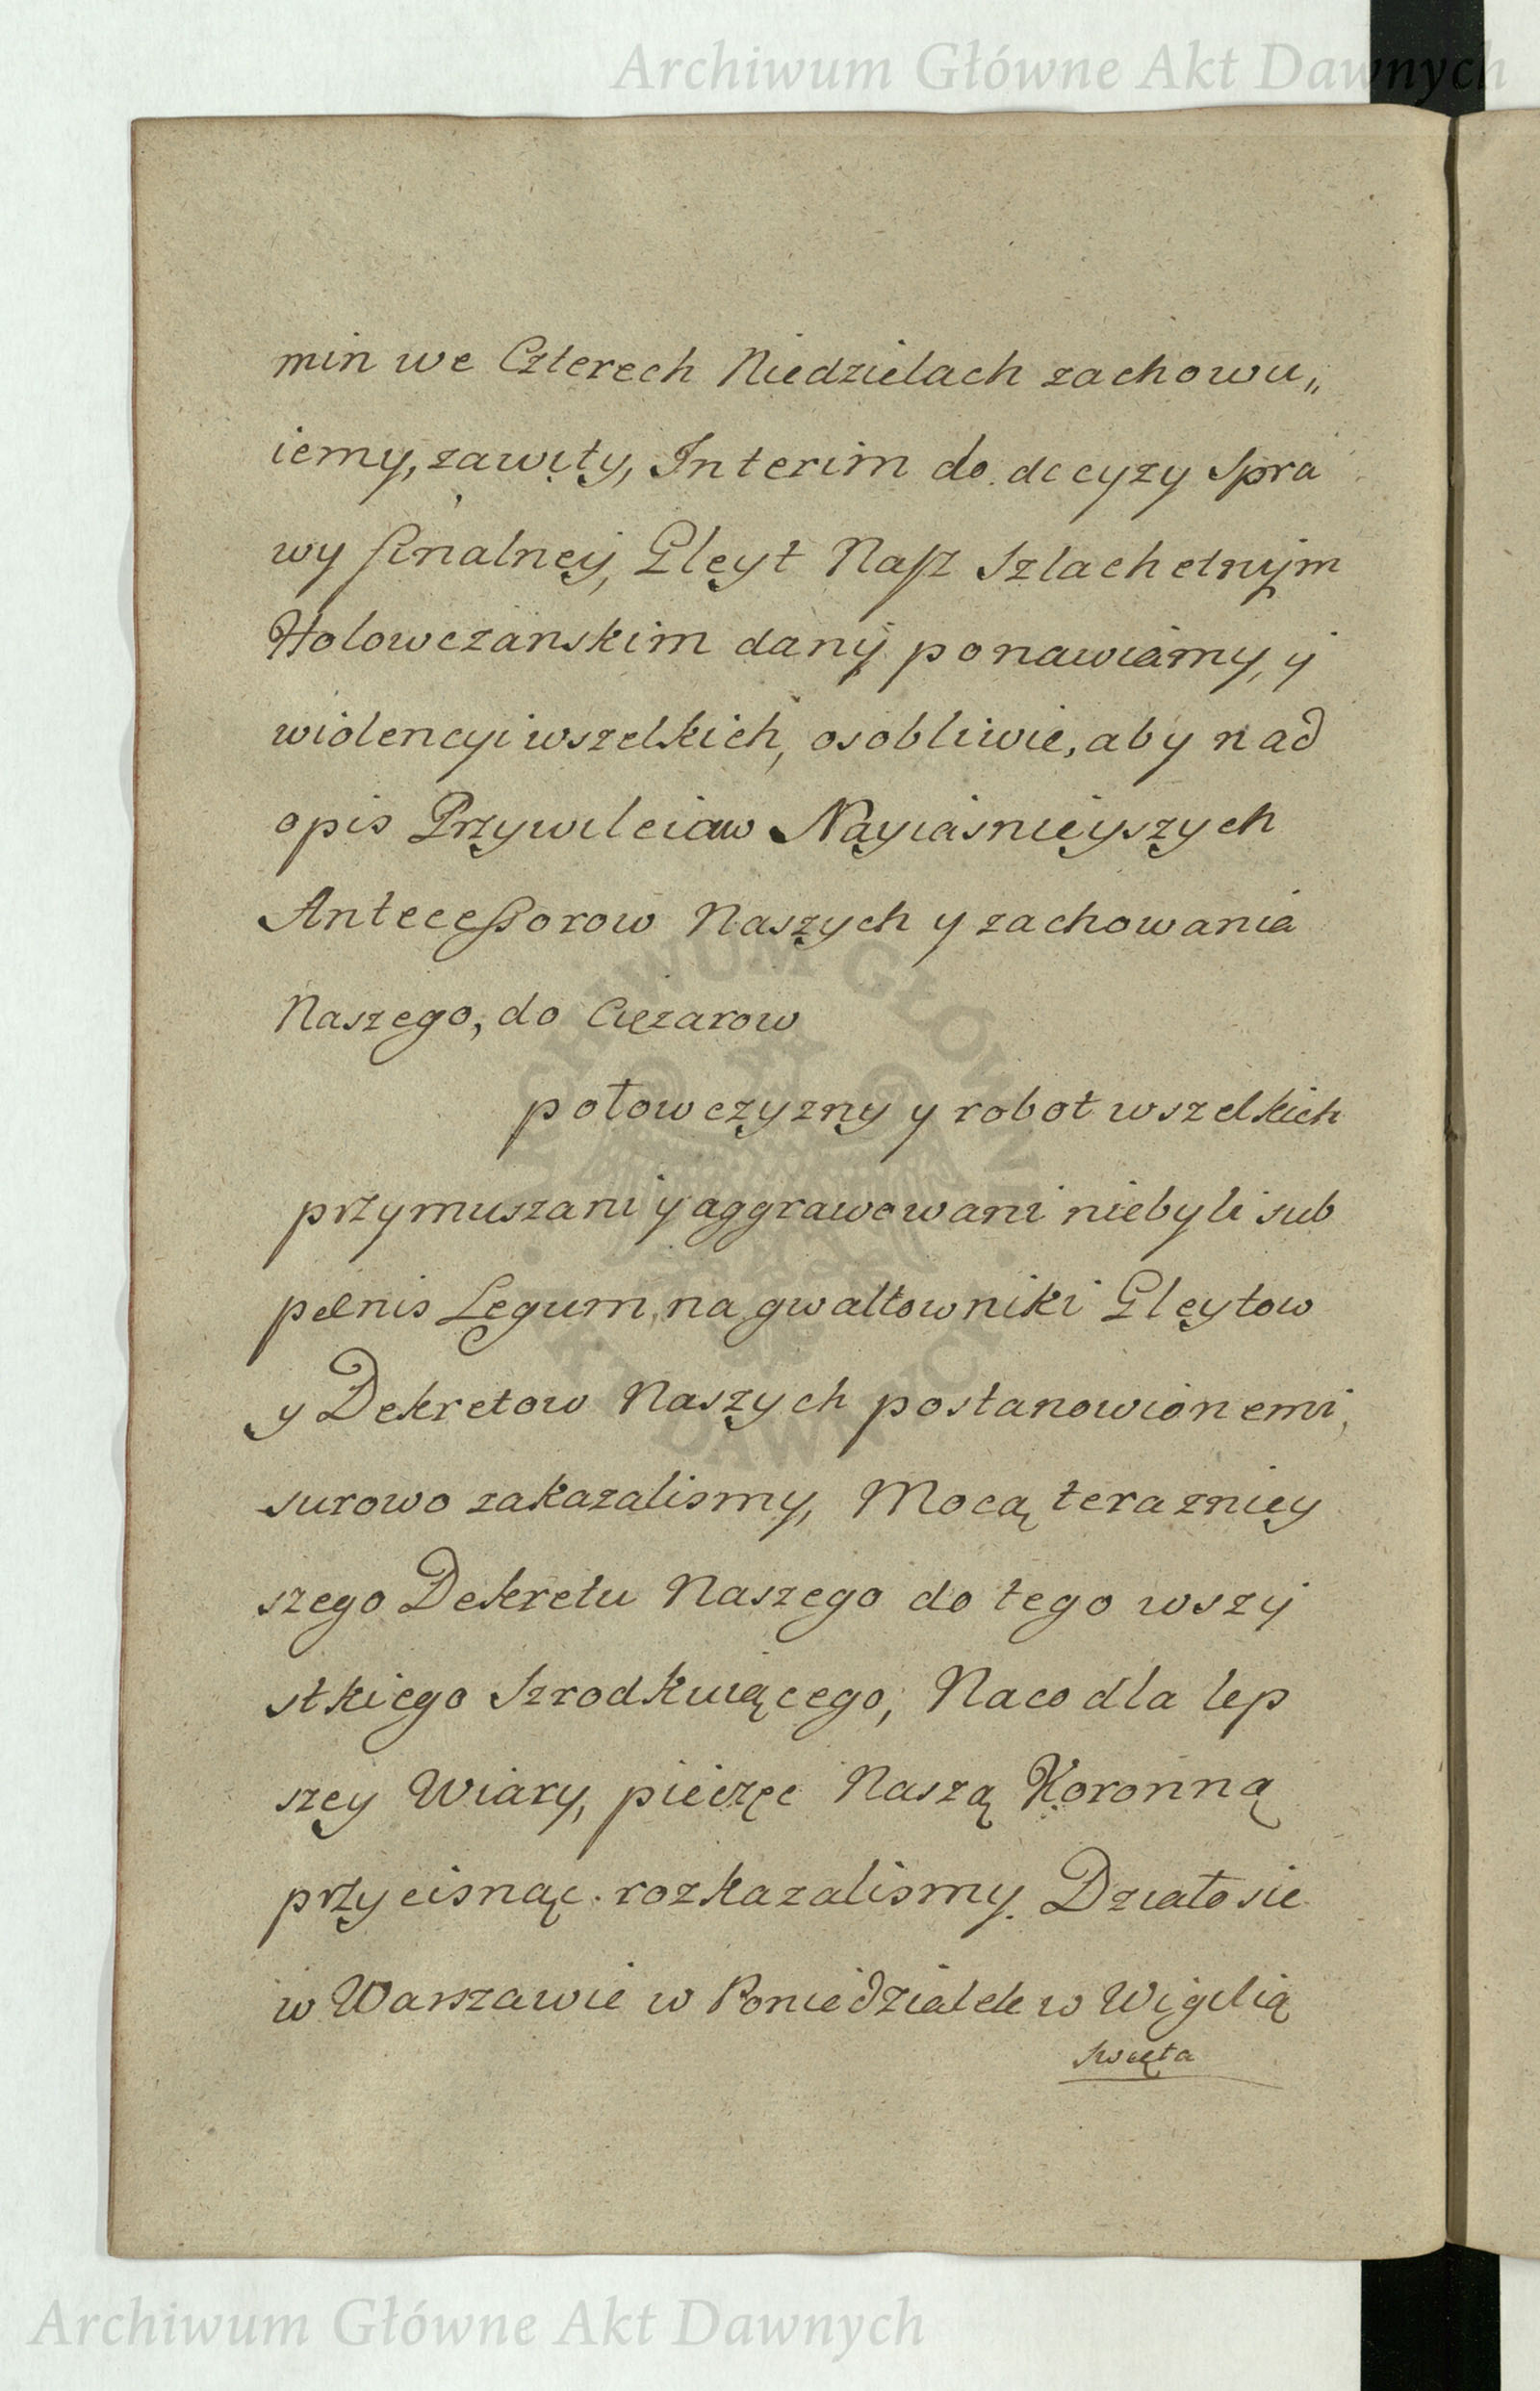 Archiwum Główne Akt Dawnych
min we Czterech Niedzielach zachowu„
iemy, zawity, Interim do decyzy Spra
wy finalney, Gleyt Nasz Szlachetnym
Holowczanskim dany ponawiamy, y
wiolencyi wszelkich, osobliwie, aby nad
opis Przywileiow Nayiasnieyszych
Antecessorow Naszych y zachowania
Naszego, do Cięzarow
połowczyzny y robot wszelkich
przymuszani y aggrawowani niebyli sub
pœnis Legum, na gwałtowniki Gleytow
y Dekretow Naszych postanowionemi,
surowo zakazalismy, Mocą terazniey
szego Dekretu Naszego do tego wszy
stkiego Szrodkuiącego, Naco dla lep
szey Wiary, pieczęc Naszą Koronną
przycisnąc rozkazalismy. Działo sie
w Warszawie w Poniedzialek w Wigilią
Swięta
ARCHIWUM GŁÓWNE
AKT DAWNYCH
Archiwum Główne Akt Dawnych